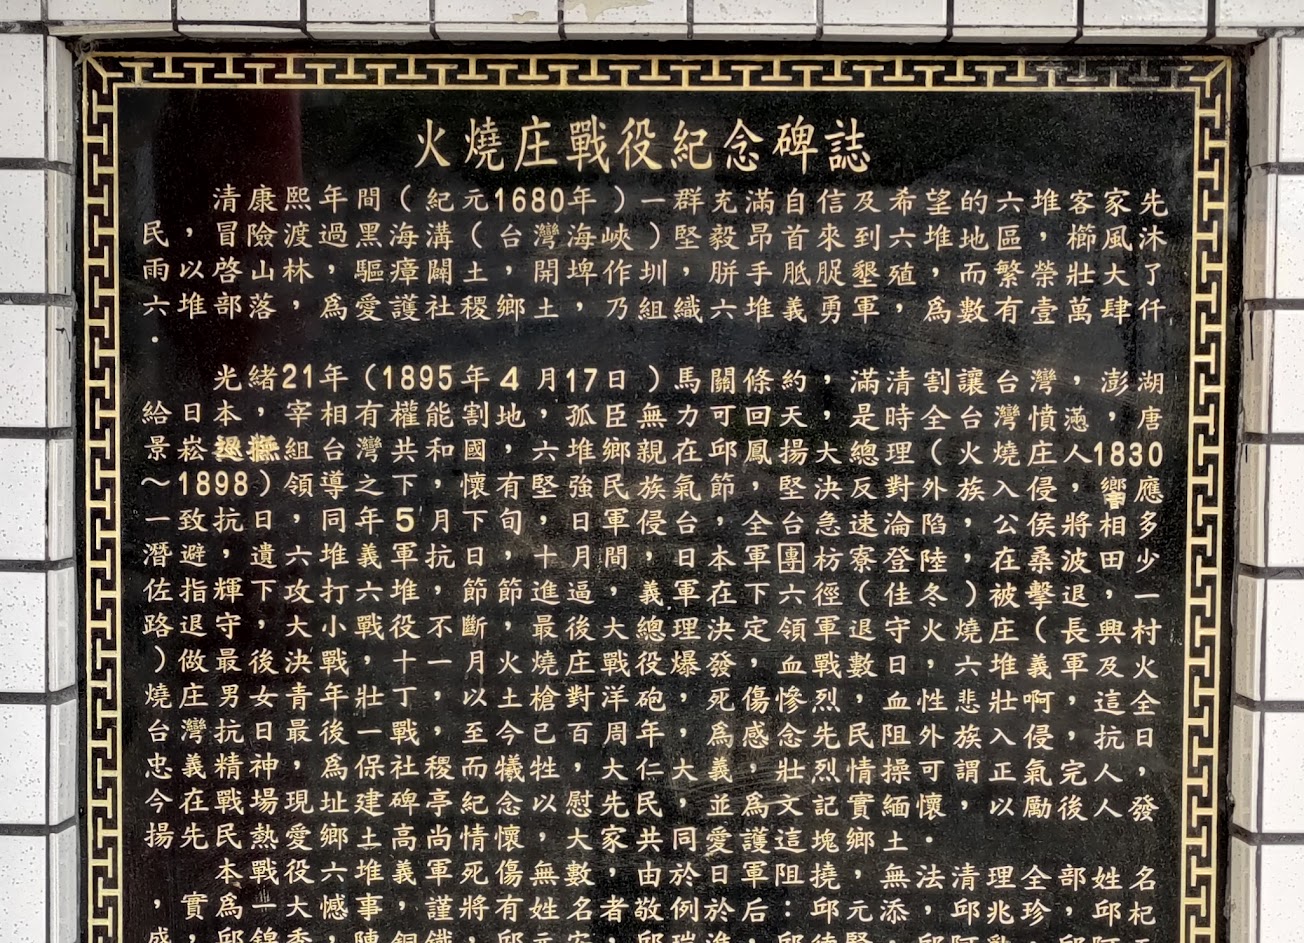 火燒庄戰役紀念碑誌
清康熙年間(紀元1680年)一群充滿自信及希望的六堆客家先
民,冒險渡過黑海溝(台灣海峽)堅毅昂首來到六堆地區,櫛風沐
雨以啓山林,驅瘴闢土,開埤作圳,胼手胝足墾殖,而繁榮壯大了
六堆部落,爲愛護社稷鄉土,乃組織六堆義勇軍,爲數有壹萬肆仟
.
光緒21年(1895年4月17日)馬關條約,滿清割讓台灣,澎湖
給日本,宰相有權能割地,孤臣無力可回天,是時全台灣憤懣,唐
景崧巡撫組台灣共和國,六堆鄉親在邱鳳揚大總理(火燒庄人1830
~1898)領導之下,懷有堅強民族氣節,堅決反對外族入侵,響應
一致抗日,同年5月下旬,日軍侵台,全台急速淪陷,公侯將相多
潛避,遺六堆義軍抗日,十月間,日本軍團枋寮登陸,在桑波田少
佐指輝下攻打六堆,節節進逼,義軍在下六徑(佳冬)被擊退,一
路退守,大小戰役不斷,最後大總理決定領軍退守火燒庄(長興村
)做最後決戰,十一月火燒庄戰役爆發,血戰數日,六堆義軍及火
燒庄男女青年壯丁,以土槍對洋砲,死傷慘烈,血性悲壯啊,這全
台灣抗日最後一戰,至今已百周年,爲感念先民阻外族入侵,抗日
忠義精神,爲保社稷而犧牲,大仁大義,壯烈情操可謂正氣完人,
今在戰場現址建碑亭紀念以慰先民,並爲文記實緬懷,以勵後人發
揚先民熱愛鄉土高尚情懷,大家共同愛護這塊鄉土.
本戰役六堆義軍死傷無數,由於日軍阻撓,無法清理全部姓名
,實爲一大憾事,謹將有姓名者敬例於后:邱元添,邱兆珍,邱杞
盛,邱錦香,陳銅鐵,邱元安,邱瑞